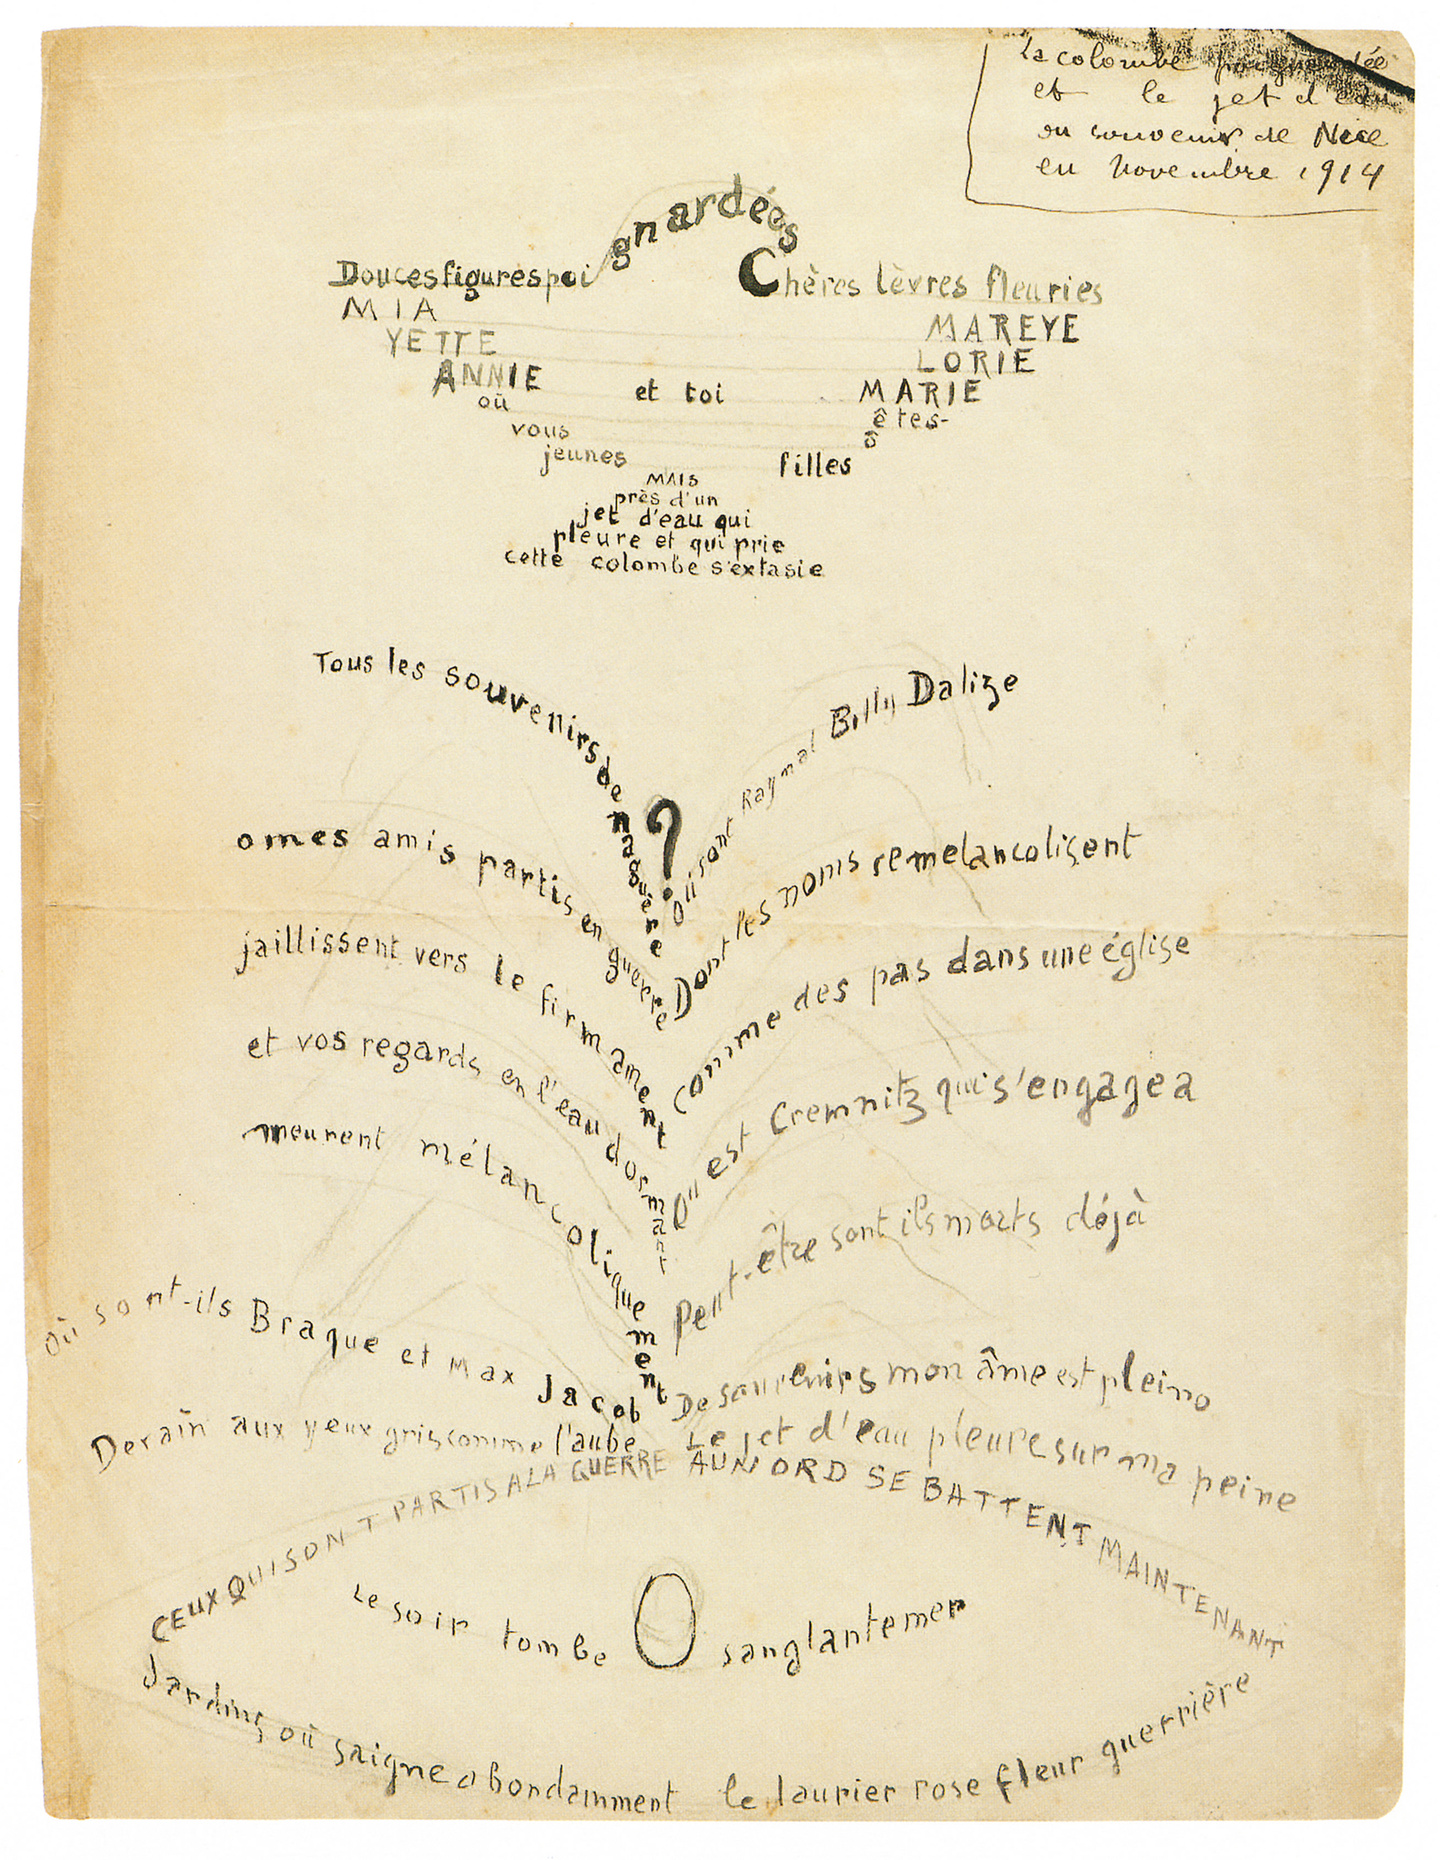 La colombe poignardée
et le jet d'eau
ou souvenir de Nice
en novembre 1914
Douces figures poignardées
Chères lèvres fleuries
MIA MAREYE
YETTE LORIE
ANNIE et toi MARIE
où êtes-
vous ô
jeunes filles
MAIS
près d'un
jet d'eau qui
pleure et qui prie
cette colombe s'extasie
Tous les souvenirs de naguère
?
O mes amis partis en guerre
jaillissent vers le firmament
et vos regards en l'eau dormant
meurent mélancoliquement
Où sont-ils Braque et Max Jacob
Derain aux yeux gris comme l'aube
Où sont Raynal Billy Dalize
Dont les noms se melancolisent
comme des pas dans une église
Où est Cremnitz qui s'engagea
Peut-être sont ils morts déjà
De souvenirs mon âme est pleine
Le jet d'eau pleure sur ma peine
CEUX QUI SONT PARTIS A LA GUERRE AU NORD SE BATTENT MAINTENANT
Le soir tombe O sanglante mer
Jardins où saigne abondamment le laurier rose fleur guerrière